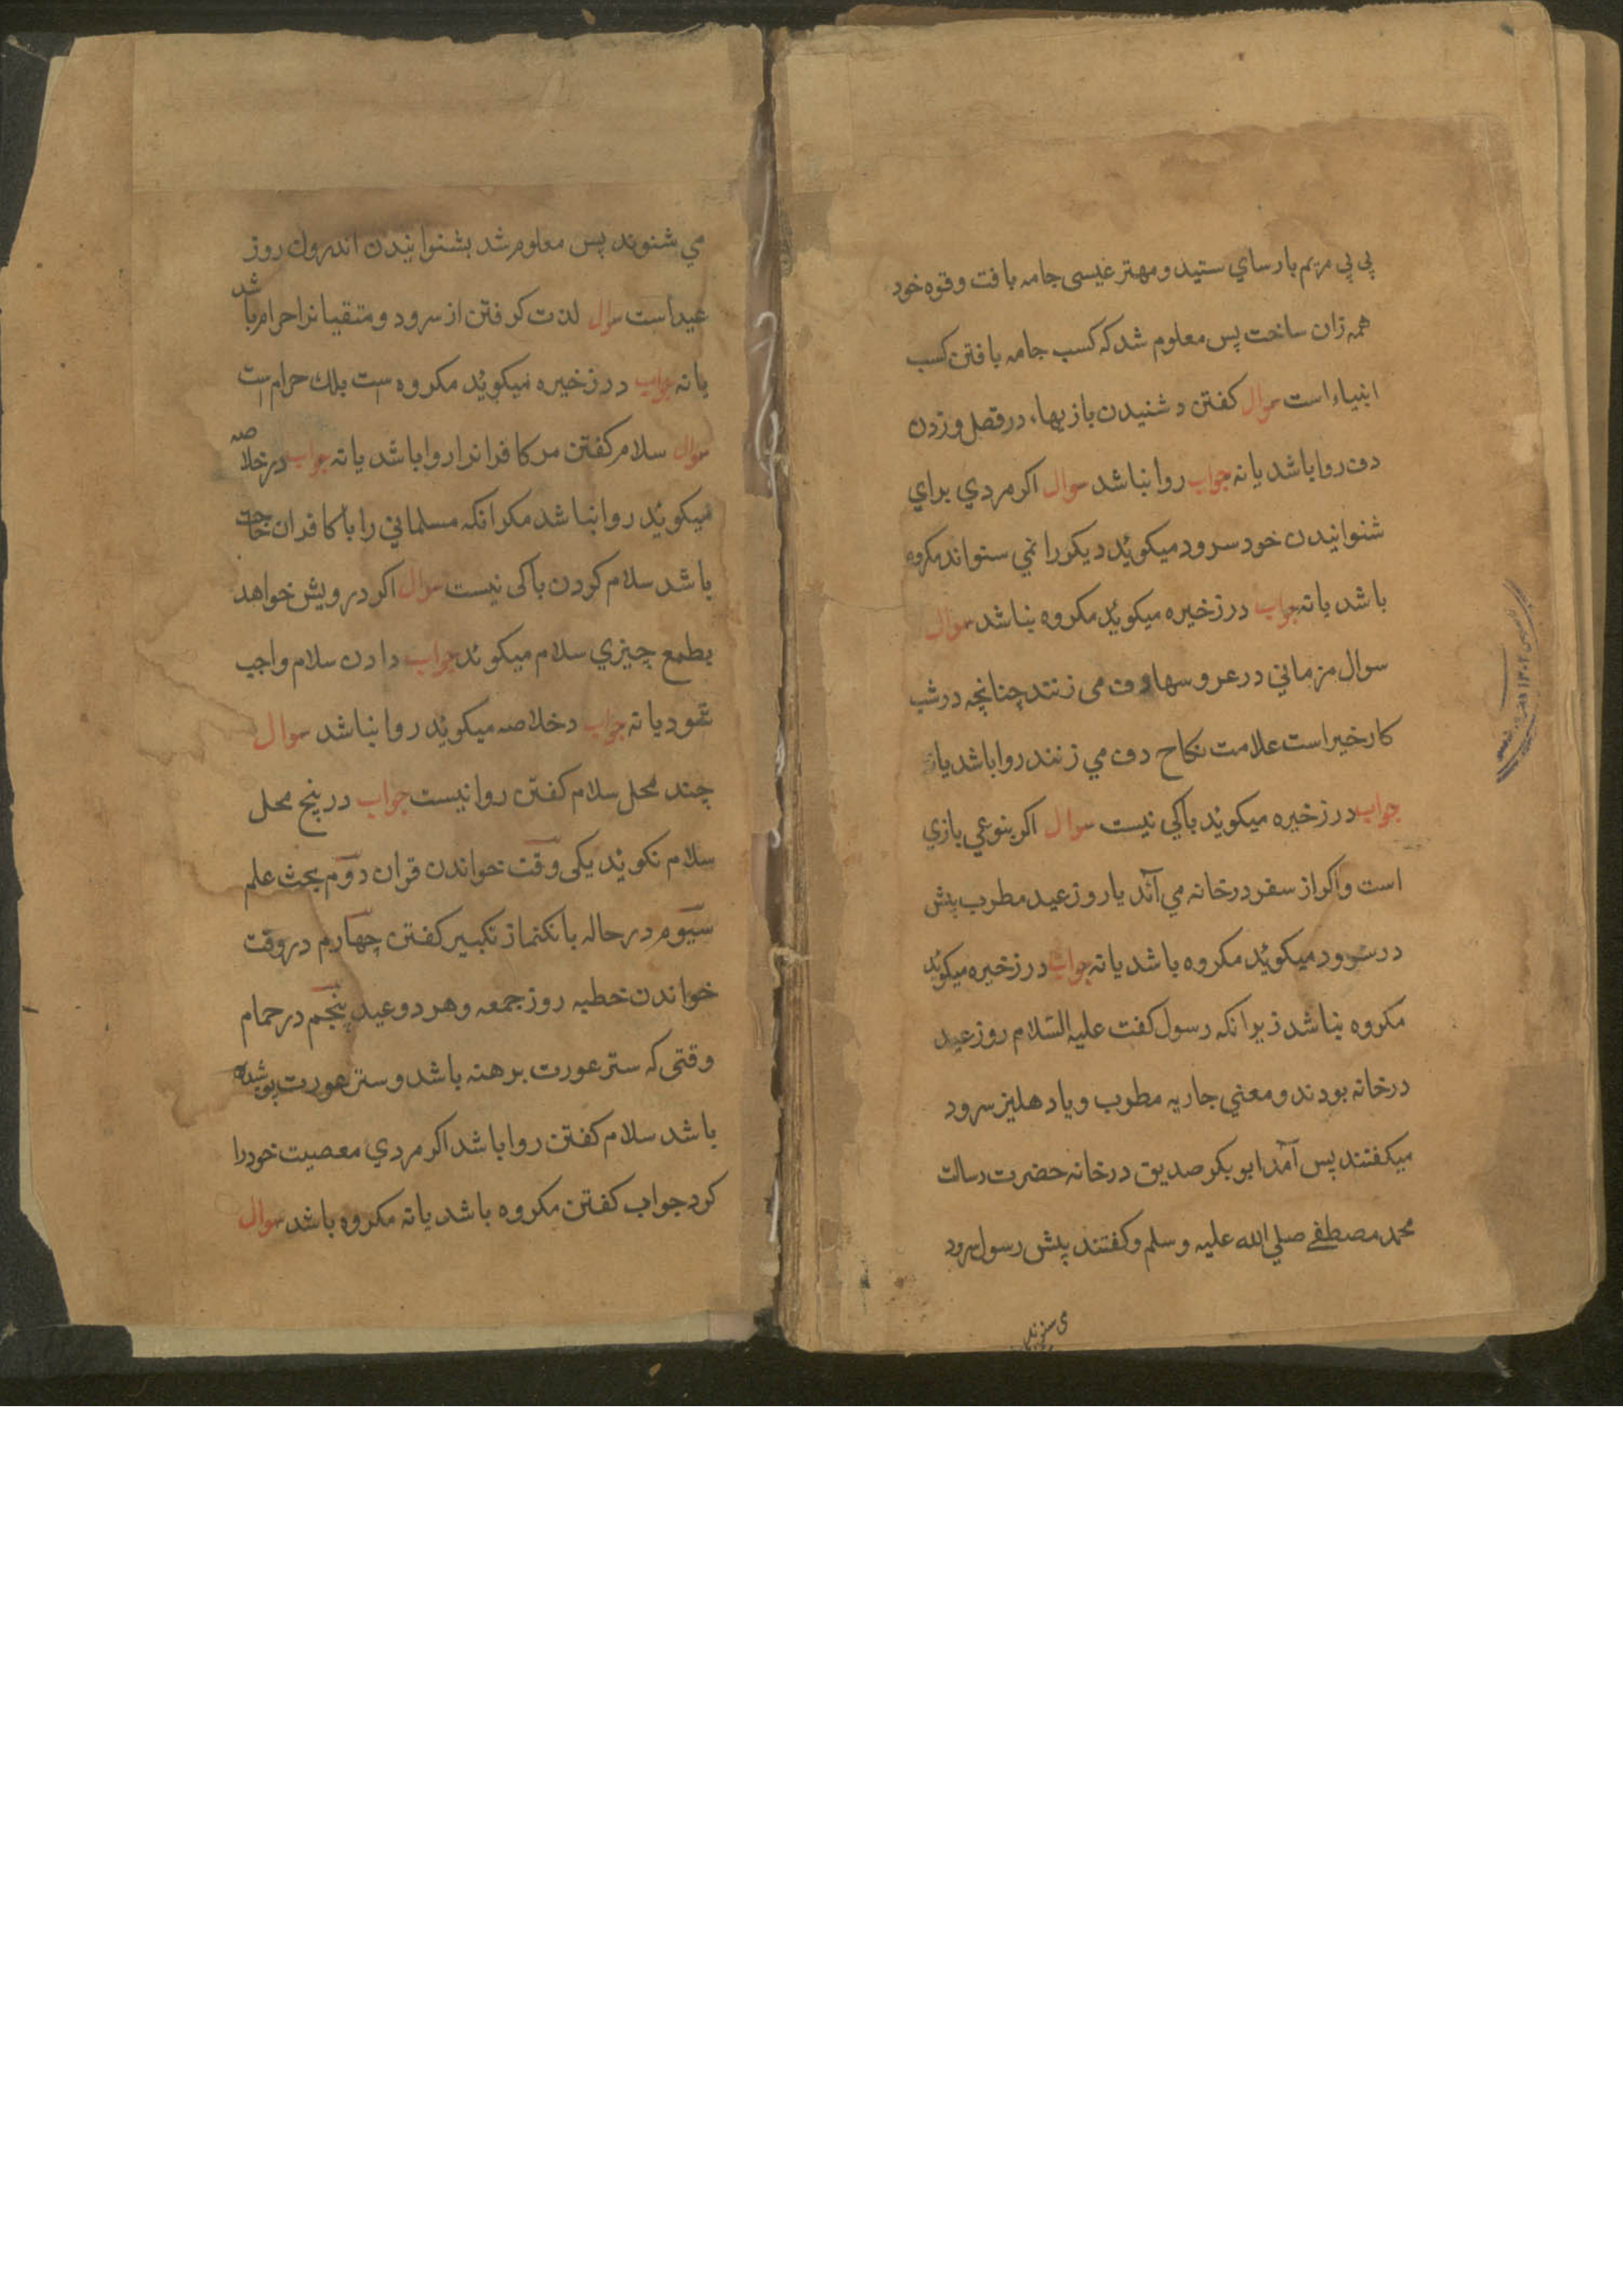 بي بي مريم بارساي ستيد و مهتر عيسى جامه بافت وقوه خود
همه زان ساخت پس معلوم شد كه كسب جامه بافتن كسب
انبياء است سوال كفتن و شنيدن بازيها، در قصل و زدن
دف روا باشد يا نه جواب روا نباشد سوال اكر مردي براي
شنوانيدن خود سرود ميكوئد ديكر را نمي سنواند مكروه
باشد يا نه جواب در زخيره ميكوئد مكروه نباشد سوال
سوال مزماني در عروسها دف مى زنند چنانچه در شب
كار خير است علامت نكاح دف مي زنند روا باشد يا نه
جواب در زخيره ميكوئد باكي نيست سوال اكر بنوعي بازي
است واكر از سفر در خانه مي آئد يا روز عيد مطرب پيش
در سرود ميكوئد مكروه باشد يا نه جواب در زخيره ميكوئد
مكروه نباشد زيرانكه رسول كفت عليه السّلام روز عيد
در خانه بودند و معني جاريه مطرب و يا دهليز سرود
ميكفتند پس آمد ابو بكر صديق در خانه حضرت رسالت
محمد مصطفے صلي الله عليه وسلم وكفتند پيش رسول سرود
مى شنوند
مي شنوند پس معلوم شد بشنوانيدن اندرون روز
عيد است سوال لذت كرفتن از سرود و متقيانرا حرام باشد
يا نه جواب در زخيره ميكوئد مكروه است بلك حرام است
سوال سلام كفتن مر كافرانرا روا باشد يا نه جواب در خلاصه
ميكوئد روا نباشد مكر انكه مسلماني را با كافران حاجت
باشد سلام كردن باكى نيست سوال اكر درويش خواهد
بطمع چيزي سلام ميكوئد جواب دادن سلام واجب
شود يا نه جواب دخلاصه ميكوئد روا نباشد سوال
چند محل سلام كفتن روا نيست جواب در پنج محل
سلام نكوئد يكى وقت خواندن قران دوم بحث علم
سيوم در حاله بانكنماز تكبير كفتن چهارم در وقت
خواندن خطبه روز جمعه و هر دو عيد پنجم در حمام
وقتى كه ستر عورت برهنه باشد و ستر عورت پوشيده
باشد سلام كفتن روا باشد اكر مردي معصيت خود را
كرد جواب كفتن مكروه باشد يا نه مكروه باشد سوال